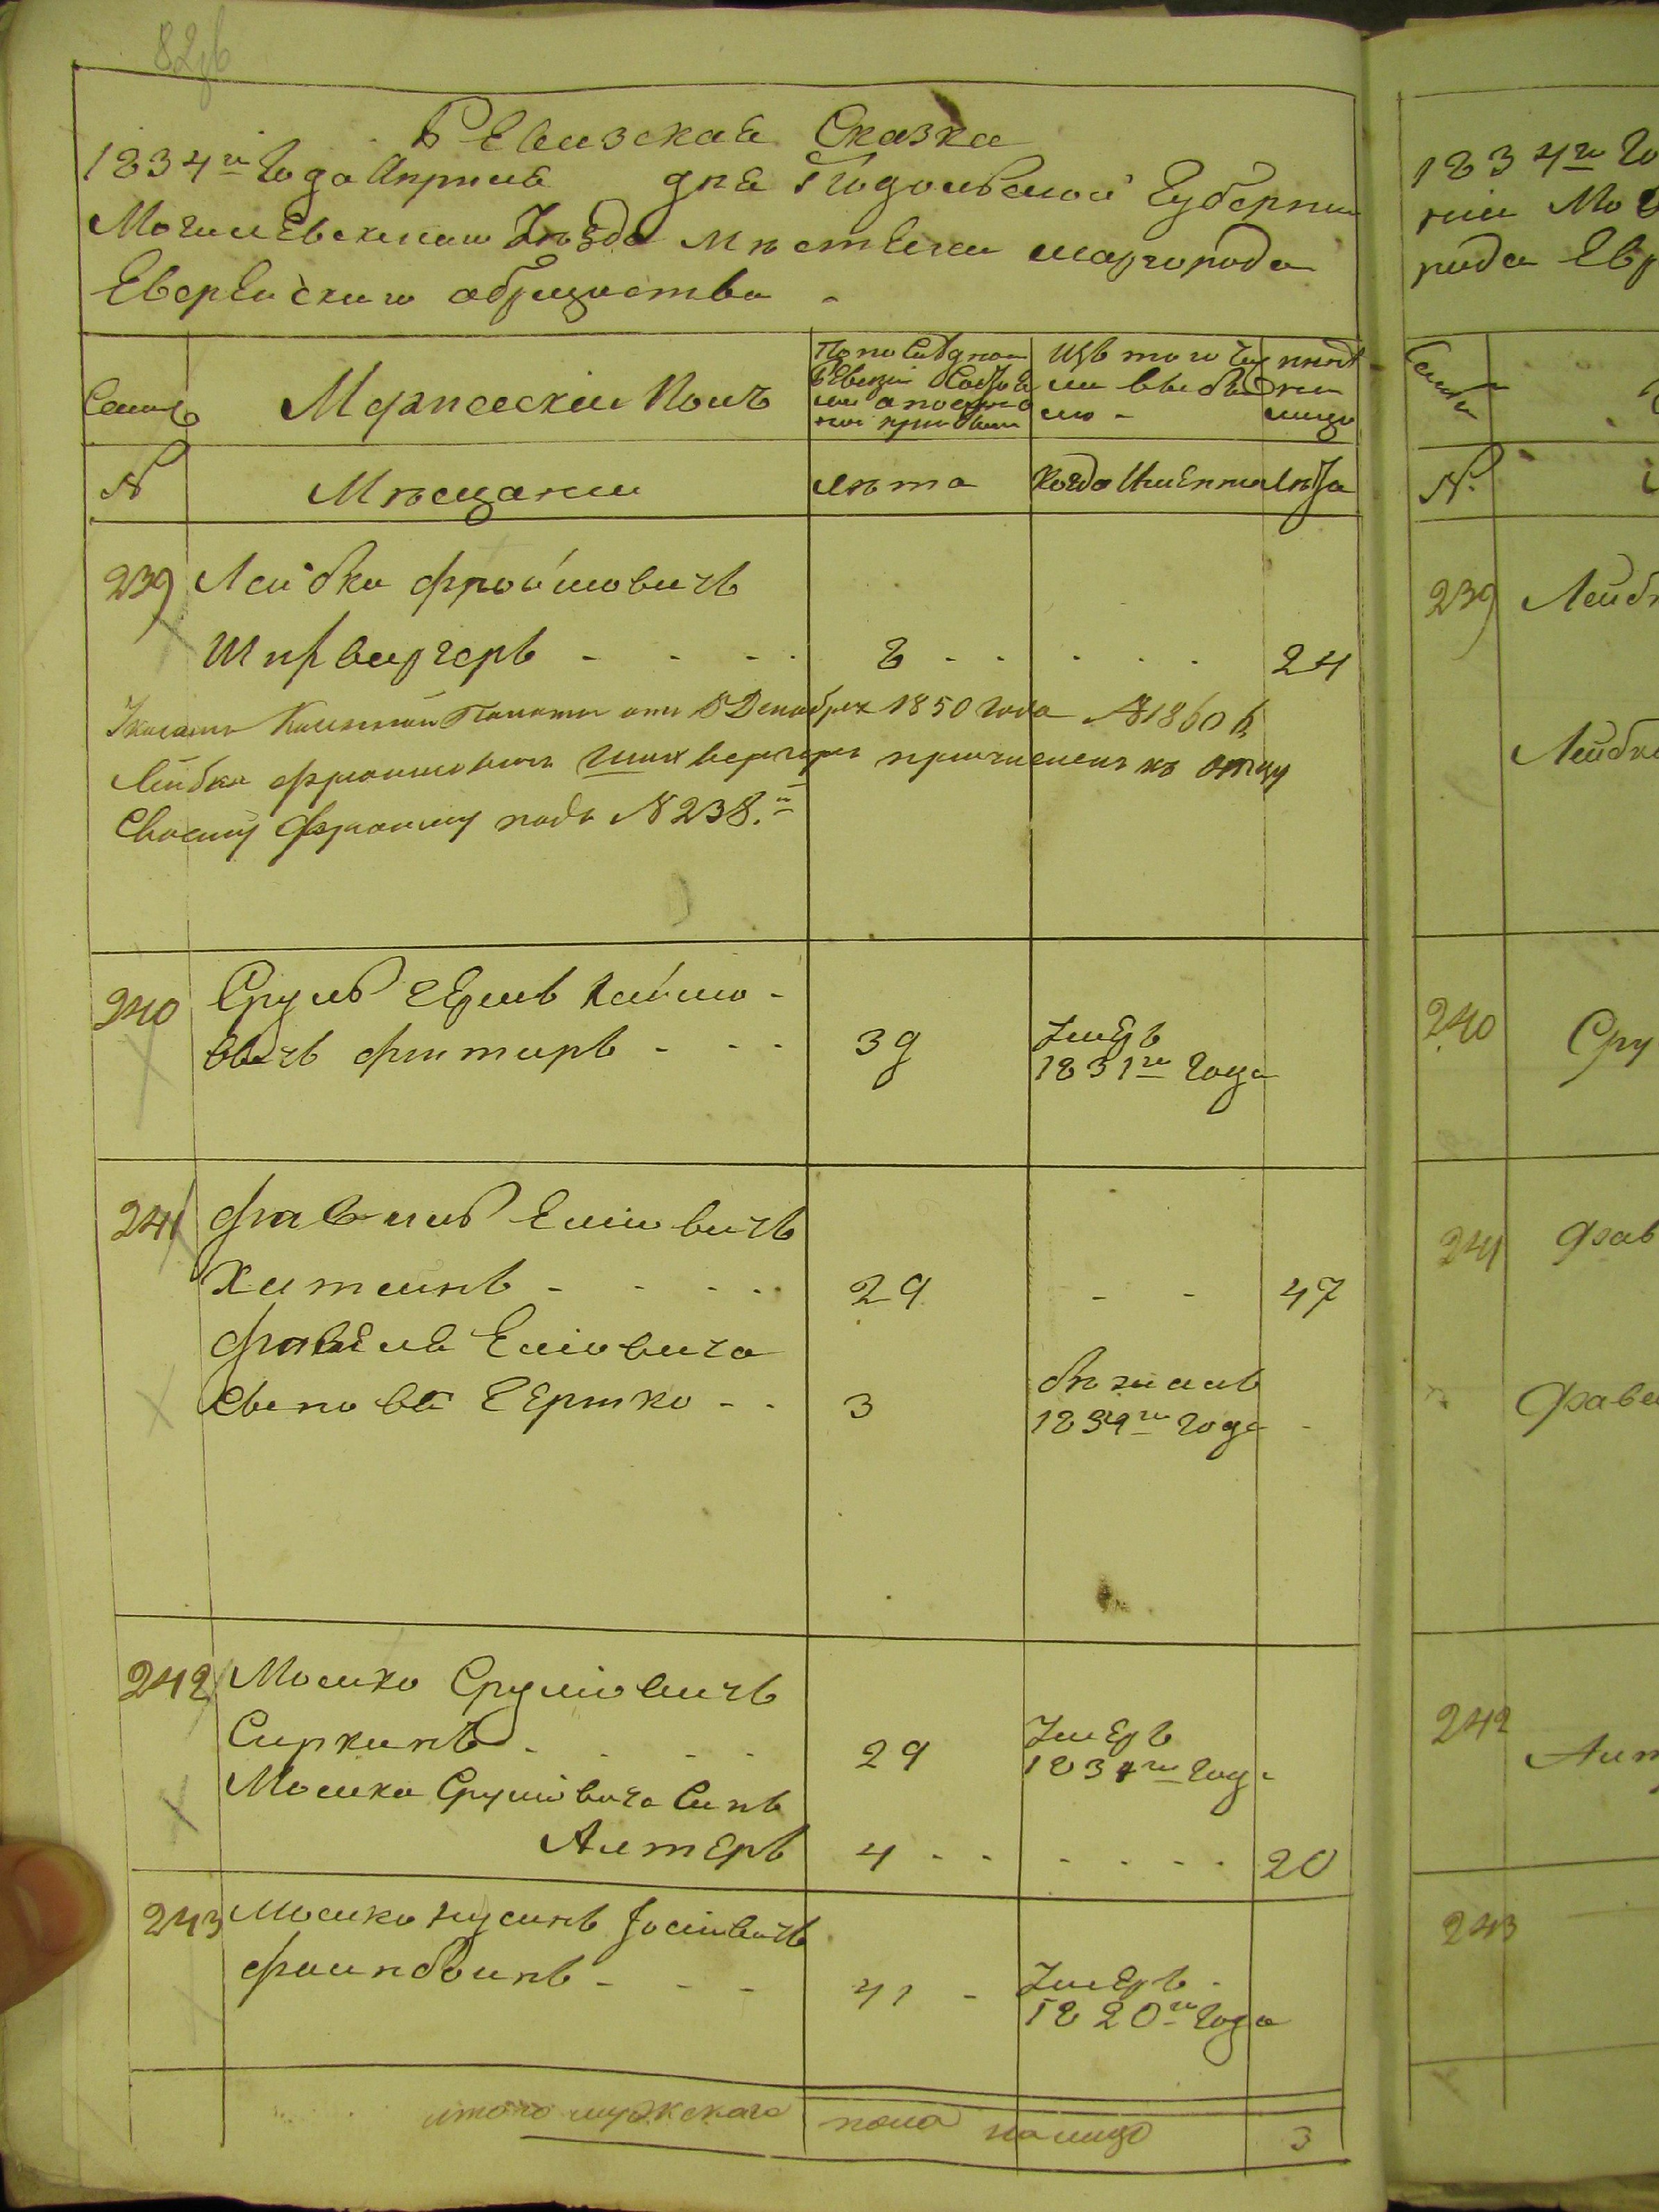 82об
Ревизская Сказка
1834го Года Апреля дня Подольской Губернии
Могилевскаго Уезда Местечка Шаргорода
Еврейскаго общества
Семьи
Мужескии Полъ
По последней
Ревизии состоя
ло а после
оной прибыли
Изъ того чис
ла выбы
ло
ныне
на
лицо
№
Мещании
лета
Когда Именно
лета
239
Лейбко Фроймовичъ
Ширвергеръ - - - -
8 - - - - -
24
Указомъ Казенной Палаты отъ 5 Декабря 1850 года № 1860
Лейбка Фроимовичъ Ширвергеръ причисленъ къ Отцу
Своему Фроиму подъ № 238.й
240
Сруль Гершъ Хаимо-
вичъ Фитиръ - - -
39
Умеръ
1831го Года
241
Фавель Елiовичъ
Хитинъ - - - -
29
- -
47
Фавеля Елiовича
сынова Гершко - -
3
бежалъ
1834го Года -
242
Мошко Срулiовичъ
Сиркинъ - - - -
29
Умеръ
1834го Года
Мошка Срулiовича Синъ
Алтеръ
4 - - - - - -
20
243
Мошко Нусинъ Iосiовичъ
Фаинбоинъ - - -
41 -
Умеръ -
1820го Года
итого мужскаго пола налицо
3
1834го Го
нии Мо
рода Евр
Семьи
№
239
Лейб
Лейбк
240
Сру
241
Фав
Фаве
242
Алт
243